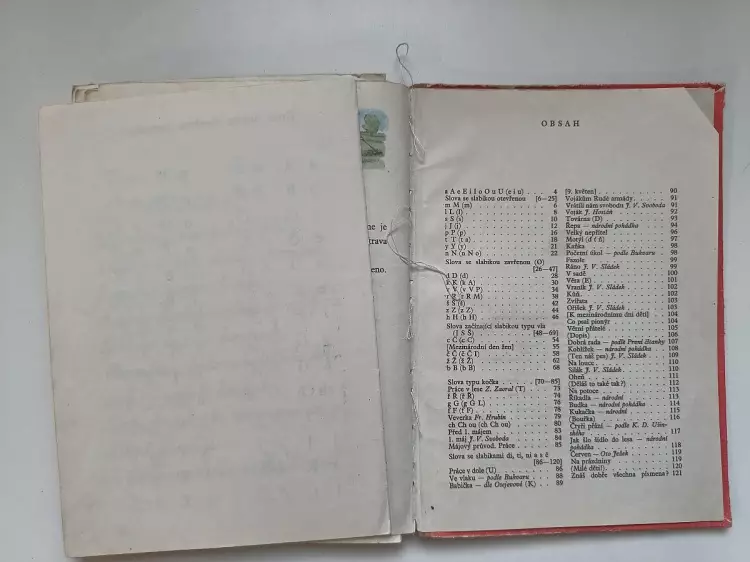 ne je
trava
eno.
OBSAH
a A e E i I o O u U (e i u) . . 4
Slova se slabikou otevřenou [6—25]
m M (m) . . . . 6
l L (l) . . . . 8
s S (s) . . . . 10
j J (j) . . . . 12
p P (p) . . . . 16
t T (t a) . . . . 18
y Y (y) . . . . 21
n N (n N o) . . . . 22
Slova se slabikou zavřenou (O)
[26—47]
d D (d) . . . . 28
k K (k A) . . . . 30
v V (v V P) . . . . 34
r R (r R M) . . . . 38
š Š (š) . . . . 42
z Z (z Z) . . . . 44
h H (h H) . . . . 46
Slova začínající slabikou typu vla
(J S Š) [48—69]
c C (c C) . . . . 54
[Mezinárodní den žen] . . 55
č Č (č Č I) . . . . 58
ž Ž (ž Ž) . . . . 62
b B (b B) . . . . 68
Slova typu kočka . . . . [70—85]
Práce v lese Z. Zaoral (T) . . 73
ř Ř (ř Ř) . . . . 74
g G (g G L) . . . . 76
f F (f F) . . . . 78
Veverka Fr. Hrubín . . . . 79
ch Ch ou (ch Ch ou) . . . . 80
Před 1. májem . . . . 83
1. máj J. V. Svoboda . . . . 84
Májový průvod. Práce . . . . 85
Slova se slabikami di, ti, ni a ě
[86—120]
Práce v dole (U) . . . . 86
Ve vlaku — podle Bukvaru . . 88
Babička — dle Osejevové (K) . . 89
[9. květen] . . . . 90
Vojákům Rudé armády . . . . 91
Vrátili nám svobodu J. V. Svoboda 91
Voják J. Hostáň . . . . 92
Továrna (D) . . . . 93
Řepa — národní pohádka . . . . 94
Velký nepřítel . . . . 96
Motýl (ď ť ň) . . . . 97
Kaňka . . . . 98
Početní úkol — podle Bukvaru . . 98
Fazole . . . . 99
Ráno J. V. Sládek . . . . 99
V sadě . . . . 100
Věra (E) . . . . 101
Vrabčík J. V. Sládek . . . . 102
Kůň . . . . 102
Zvířata . . . . 103
Oříšek J. V. Sládek . . . . 103
[K mezinárodnímu dni dětí] . . 104
Co psal pionýr . . . . 104
Věrní přátelé . . . . 105
(Dopis) . . . . 106
Dobrá rada — podle První čítanky 107
Koblížek — národní pohádka . . 108
(Ten náš pes) J. V. Sládek . . 109
Na louce . . . . 110
Silák J. V. Sládek . . . . 110
Oheň . . . . 111
(Děláš to také tak?) . . . . 112
Na potoce . . . . 113
Říkadla — národní . . . . 113
Budka — národní pohádka . . 114
Kukačka — národní . . . . 115
(Bouřka) . . . . 116
Čtyři přání — podle K. D. Ušin-
ského . . . . 117
Jak šlo šídlo do lesa — národní
pohádka . . . . 118
Červen — Ota Ježek . . . . 119
Na prázdniny . . . . 119
(Milé děti!) . . . . 120
Znáš dobře všechna písmena? 121